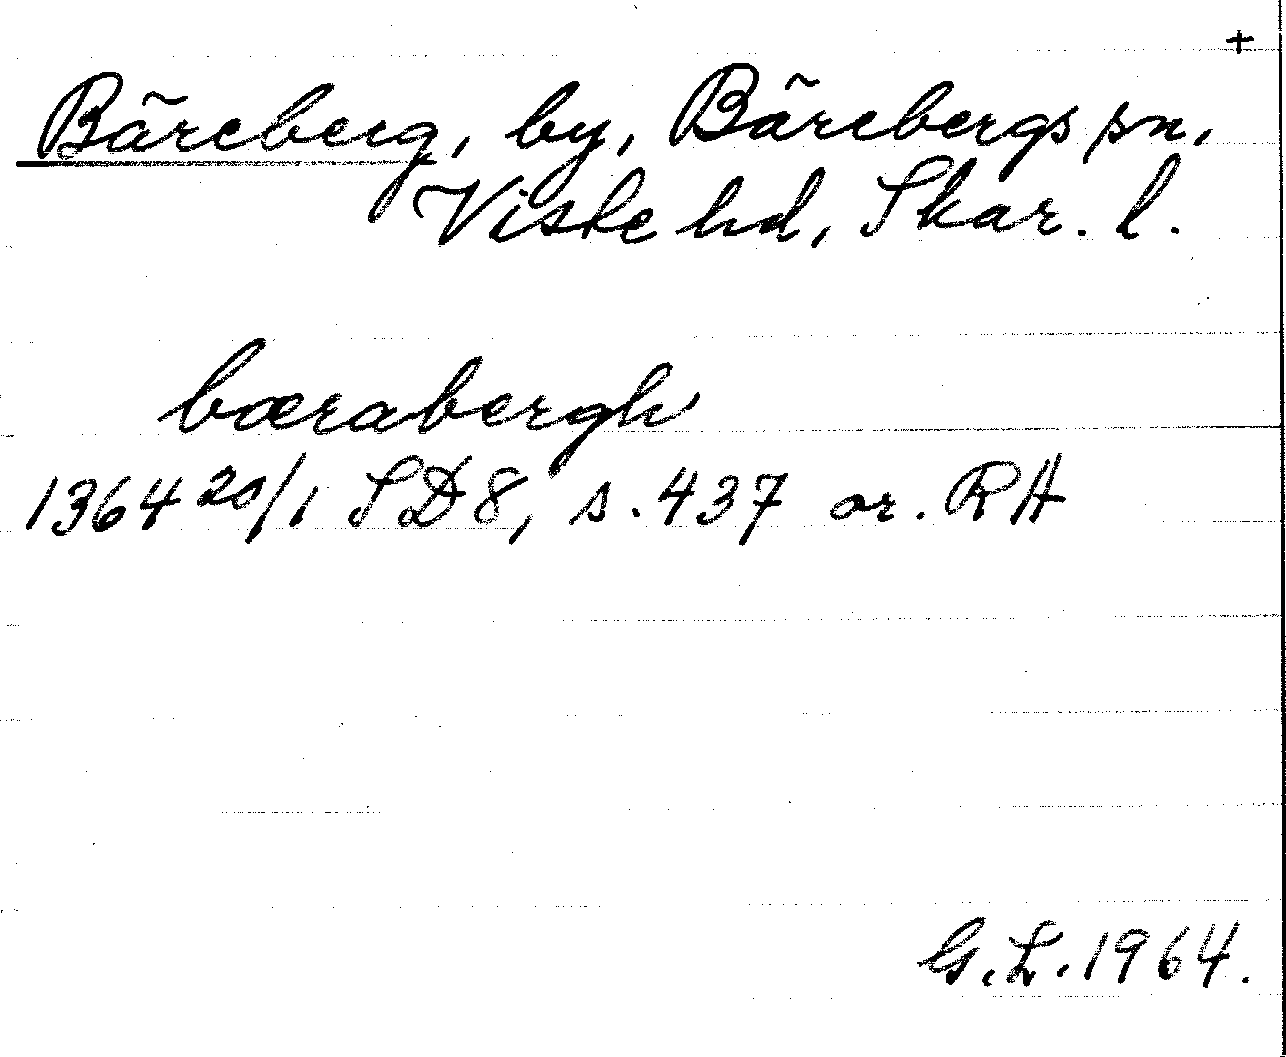 +
Bäreberg, by, Bärebergs sn,
Viste hd, Skar. l.
bærabergh
1364 20/1 SD 8, s. 437 or. RA
G.L. 1964.